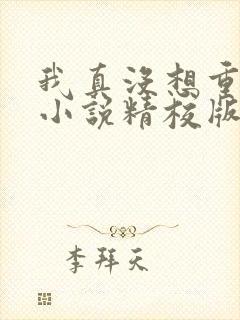 我真没想重
小说精校版
李拜天